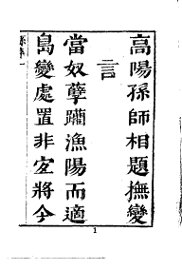 高陽孫師相題撫變
言
當奴孽躪漁陽而適
島變處置非宜將今
1